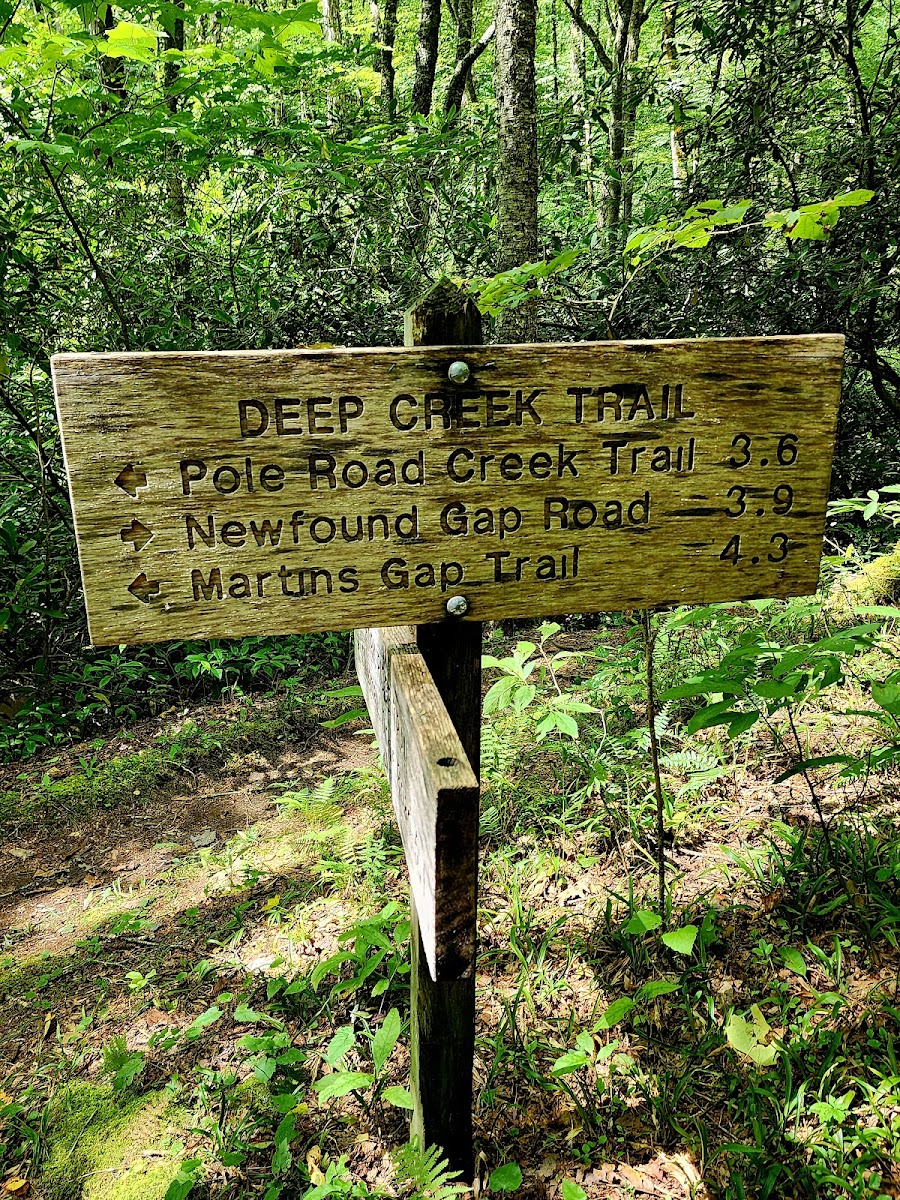 DEEP CREEK TRAIL
← Pole Road Creek Trail 3.6
→ Newfound Gap Road 3.9
← Martins Gap Trail 4.3